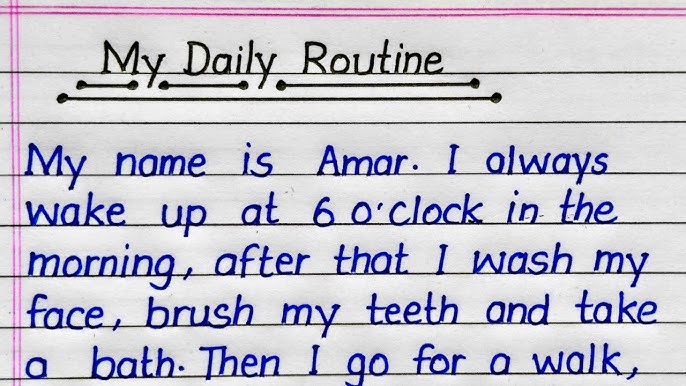 My Daily Routine
My name is Amar. I always
wake up at 6 o'clock in the
morning, after that I wash my
face, brush my teeth and take
a bath. Then I go for a walk,